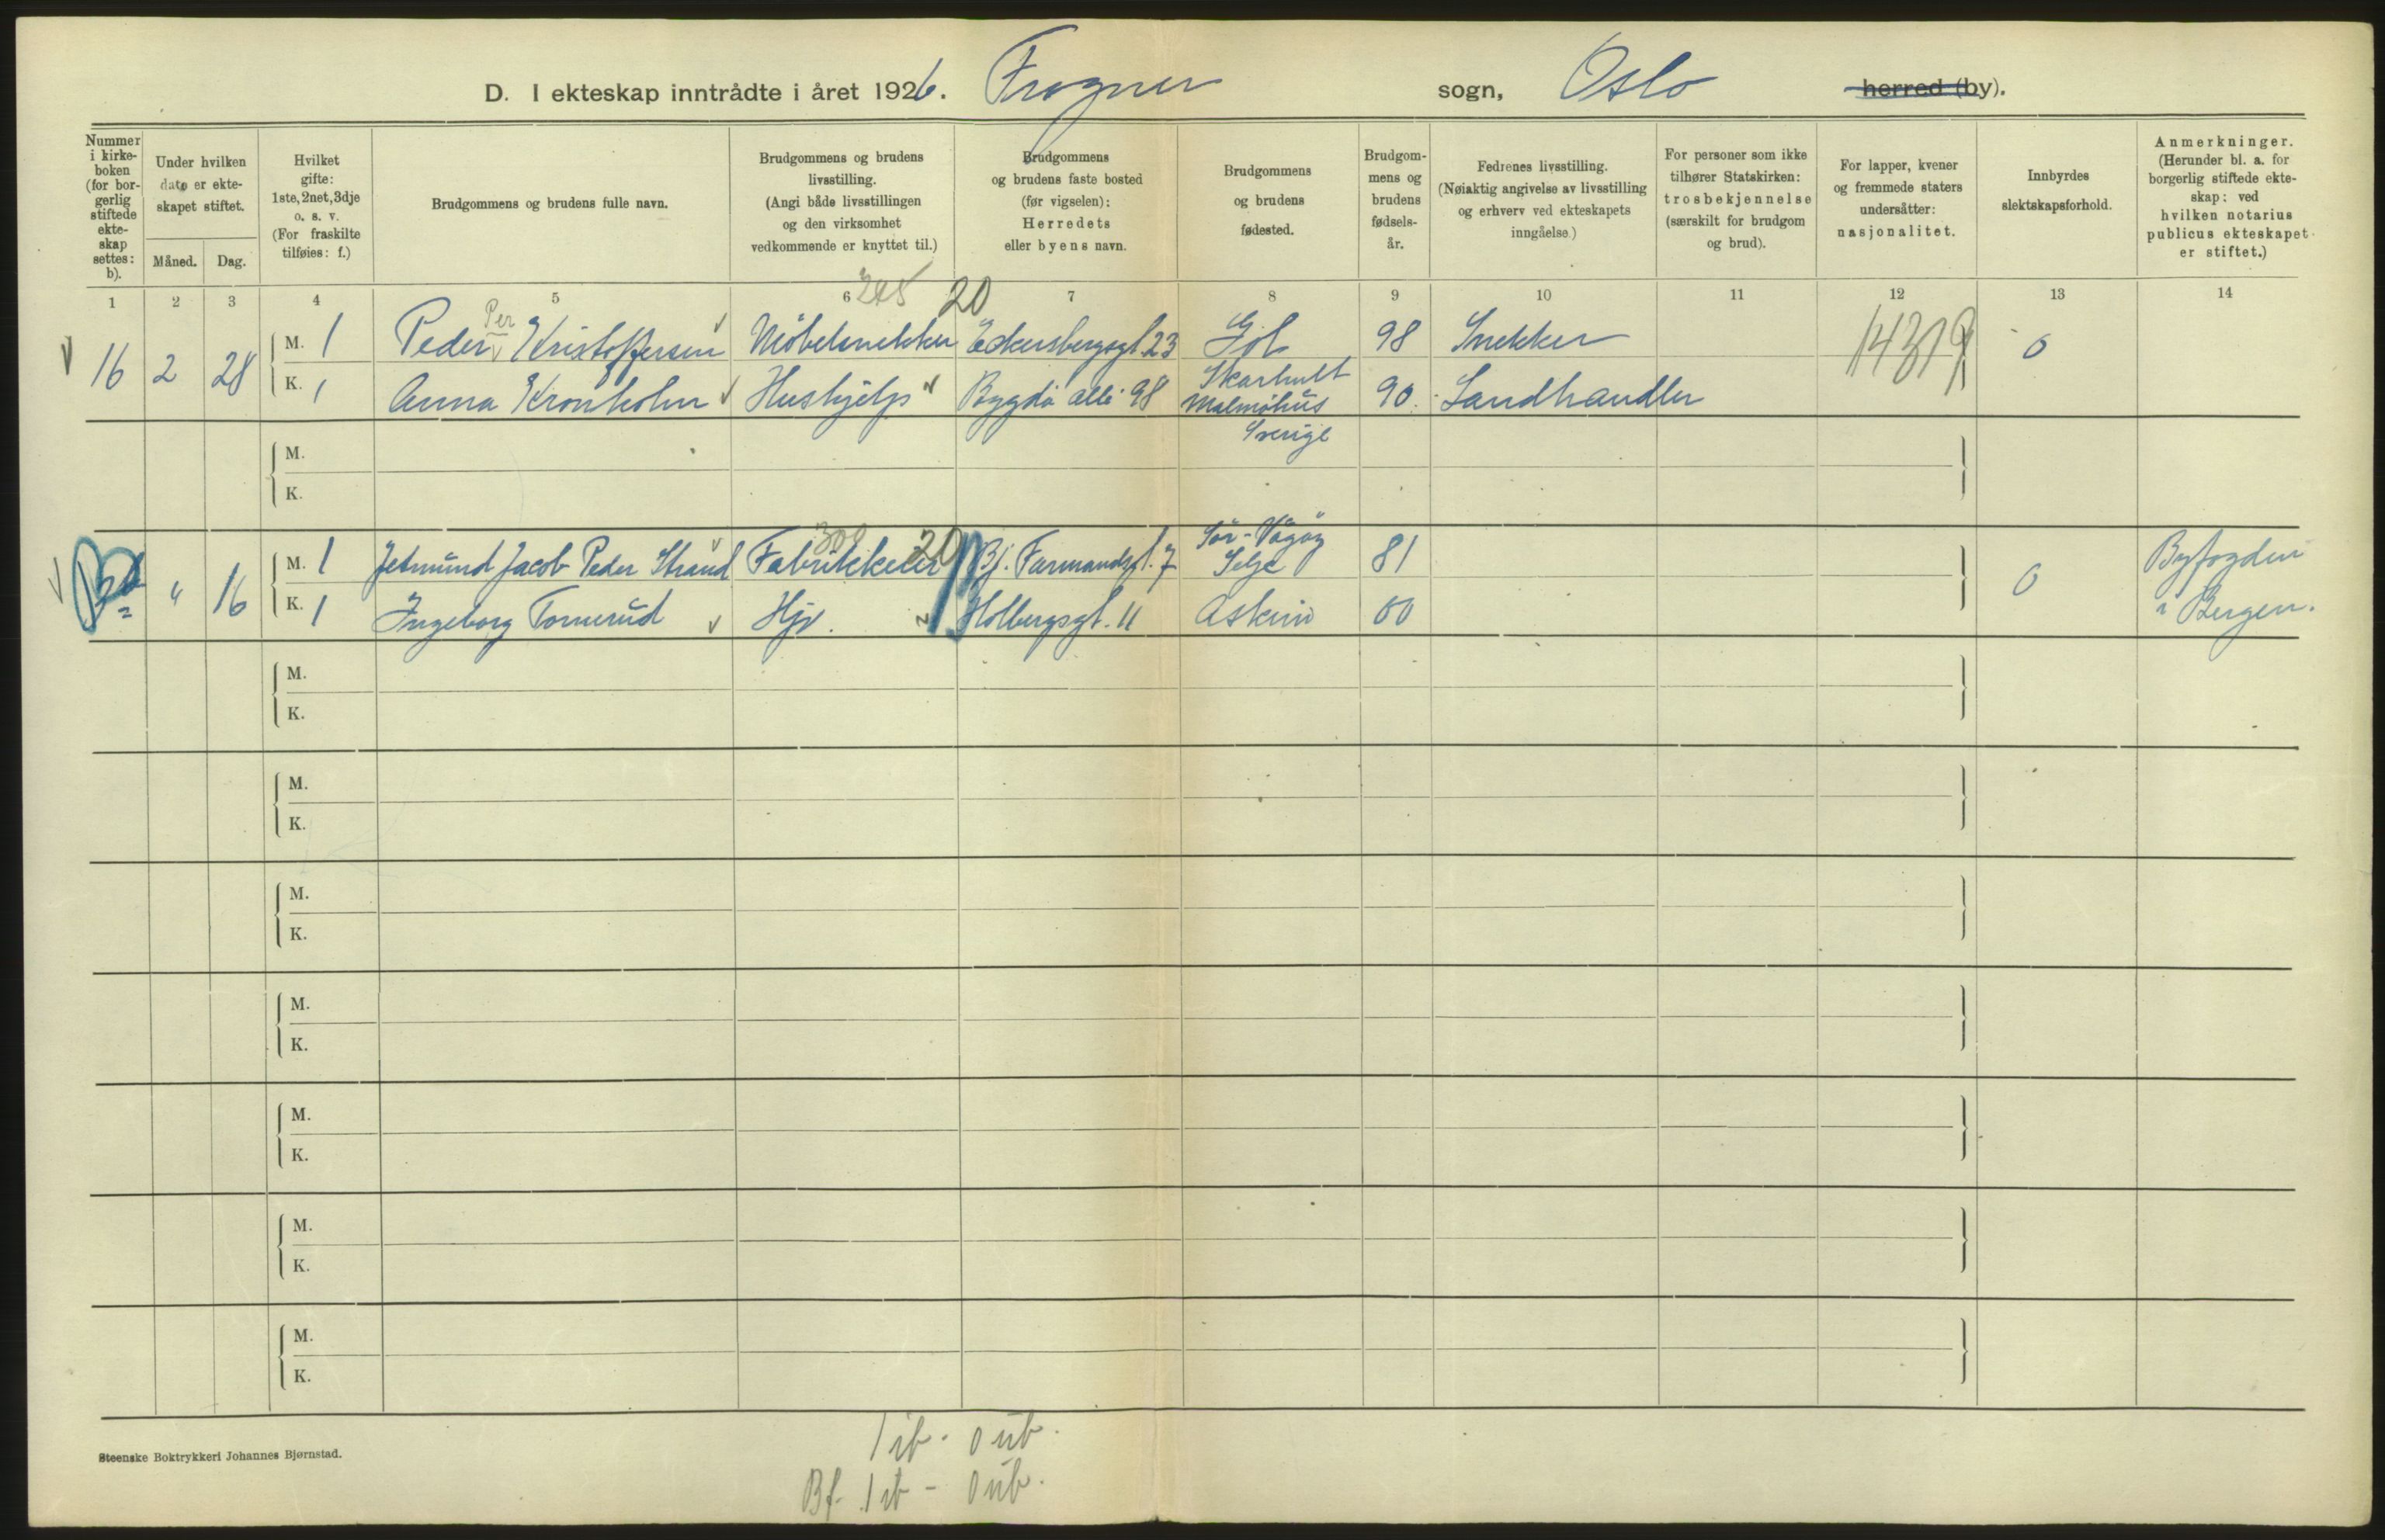 D. I ekteskap inntrådte i året 1926. Frogner sogn, Oslo herred (by).
Nummer i kirke-boken (for bor-gerlig stiftede ekte-skap settes: b).
Under hvilken dato er ekte-skapet stiftet.
Måned. Dag.
Hvilket gifte: 1ste, 2net, 3dje o. s. v. (For fraskilte tilføies: f.)
Brudgommens og brudens fulle navn.
Brudgommens og brudens livsstilling. (Angi både livsstillingen og den virksomhet vedkommende er knyttet til.)
Brudgommens og brudens faste bosted (før vigselen): Herredets eller byens navn.
Brudgommens og brudens fødested.
Brudgom-mens og brudens fødsels-år.
Fedrenes livsstilling. (Nøiaktig angivelse av livsstilling og erhverv ved ekteskapets inngåelse.)
For personer som ikke tilhører Statskirken: trosbekjennelse (særskilt for brudgom og brud).
For lapper, kvener og fremmede staters undersåtter: nasjonalitet.
Innbyrdes slektskapsforhold.
Anmerkninger. (Herunder bl. a. for borgerlig stiftede ekte-skap: ved hvilken notarius publicus ekteskapet er stiftet.)
1 2 3 4 5 6 7 8 9 10 11 12 13 14
20
Per
16 2 28 M. 1 Peder Kristoffersen Möbelsnekker Eckersbergsgt. 23 Gol 98 Snekker 0
K. 1 Anna Kronholm Hushjelp Bygdö allé 98 Skarhult Malmöhus Sverige 90 Landhandler
M.
K.
300 20
" 16 M. 1 Jetmund Jacob Peder Strand Fabrikkeier Bj. Farmandsgt. 7 Sör-Vågöy Selje 81 0 Byfogden
K. 1 Ingeborg Tomerud Hjv. Holbergsgt. 11 Askim 00 i Bergen.
M.
K.
M.
K.
M.
K.
M.
K.
M.
K.
M.
K.
M.
K.
1 ib - 0 ub.
Bf. 1 ib - 0 ub.
Steenske Boktrykkeri Johannes Bjørnstad.